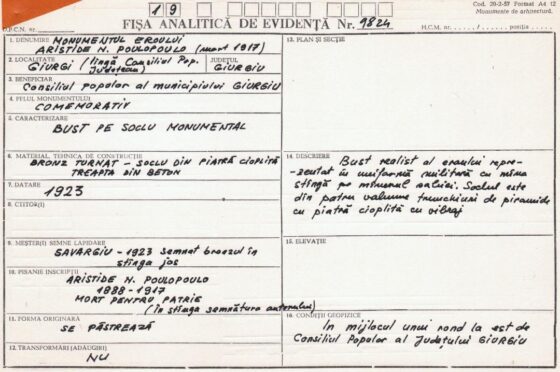 Cod. 20-2-57 Format A4 12
Monumente de arhitectură.
1 9
FIȘA ANALITICĂ DE EVIDENȚĂ Nr. 9824
D.P.C.N. nr.
H.C.M. nr. / poziția
1. DENUMIRE MONUMENTUL EROULUI
ARISTIDE N. POULOPOULO (mort 1917)
2. LOCALITATE
GIURGI (lîngă Consiliul Pop. Județean)
JUDEȚUL
GIURGIU
3. BENEFICIAR
Consiliul Popolar al municipiului GIURGIU
4. FELUL MONUMENTULUI
COMEMORATIV
5. CARACTERIZARE
BUST PE SOCLU MONUMENTAL
6. MATERIAL, TEHNICA DE CONSTRUCȚIE
BRONZ TURNAT - SOCLU DIN PIATRĂ CIOPLITĂ
TREAPTA DIN BETON
7. DATARE
1923
8. CTITOR(I)
9. MEȘTER(I) SEMNE LAPIDARE
SAVARGIU - 1923 semnat bronzul în
stînga jos
10. PISANIE INSCRIPȚII
ARISTIDE N. POULOPOULO
1888-1917
MORT PENTRU PATRIE
(în stînga semnătura autorului)
11. FORMA ORIGINARĂ
SE PĂSTREAZĂ
12. TRANSFORMĂRI (ADĂUGIRI)
NU
13. PLAN ȘI SECȚIE
14. DESCRIERE
Bust realist al eroului repre-
zentat în uniformă militară cu mîna
stîngă pe mînerul sabiei. Soclul este
din patru volume trunchiuri de piramide
cu piatră cioplită cu vibraj
15. ELEVAȚIE
16. CONDIȚII GEOFIZICE
În mijlocul unui rond la est de
Consiliul Popolar al Județului GIURGIU